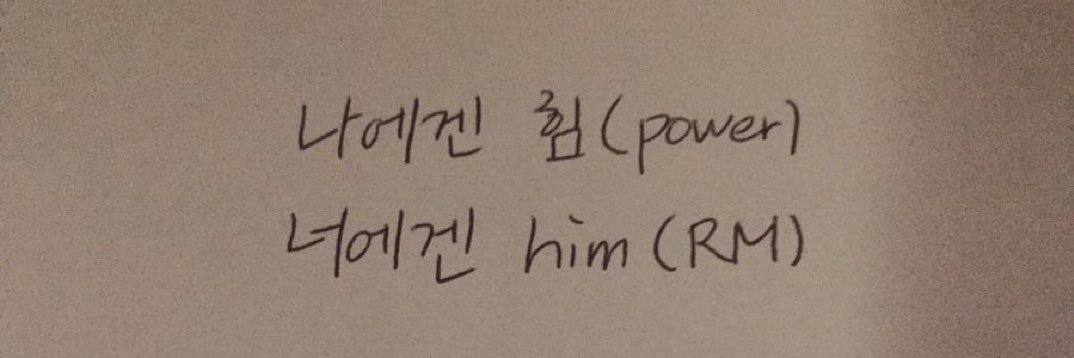 나에겐 힘(power)
너에겐 him(RM)